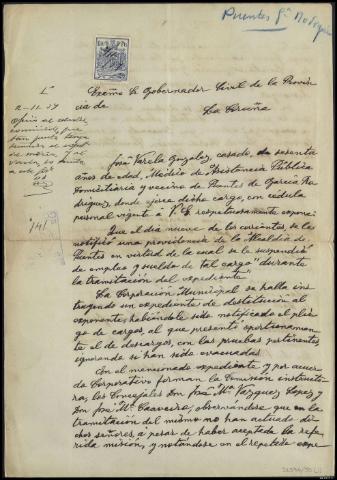 Puentes Gª Rodriguez
Excmo Sr Gobernador Civil de la Provin
cia de
La Coruña
2-11-37
José Varela González, casado, de sesenta
años de edad, Médico de Asistencia Pública
Domiciliaria y vecino de Puentes de García Ro
dríguez, donde ejerce dicho cargo, con cédula
personal vigente á V.E. respetuosamente expone:
Que el día nueve de los corrientes, se le
notificó una providencia de la Alcaldía de
Puentes en virtud de la cual se le suspendió
de empleo y sueldo de tal cargo "durante
la tramitación del expediente"
La Corporación Municipal se halla ins
truyendo un expediente de destitución al
exponente, habiéndole sido notificado el plie
go de cargos, al que presentó oportunamen
te el de descargos, con las pruebas pertinentes,
ignorando si han sido evacuadas.
Con el mencionado expediente y por acuer
do Corporativo forman la Comisión instructo
ra, los Concejales Don José Mª Vázquez López y
Don José Mª Caaveiro, observándose que en la
tramitación del mismo no han actuado di
chos señores, á pesar de haber aceptado la refe
rida misión, y notándose en el repetido expe-